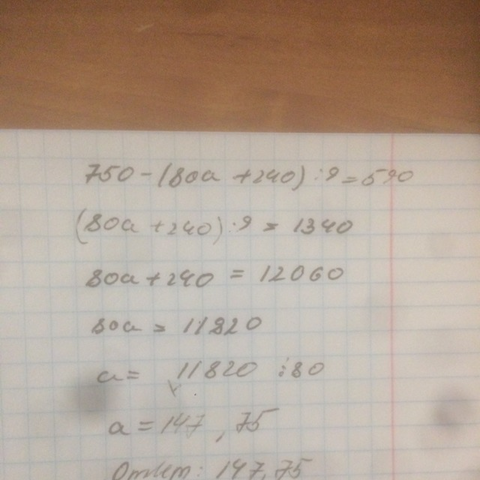 750-(80a+240):9=590
(80a+240):9=1340
80a+240=12060
80a=11820
a=11820:80
a=147,75
Ответ: 147,75